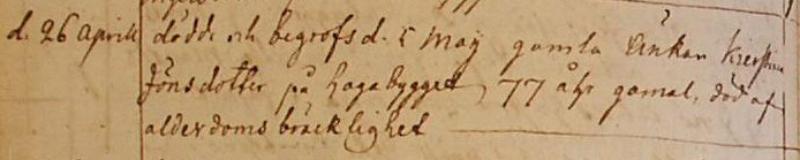 d. 26 Aprill dödde och begrofs d. 5 Maÿ gamla Enkan Kierstin
Jöns dotter på Hagabygget, 77 åhr gamal, död af
alderdoms bräcklighet